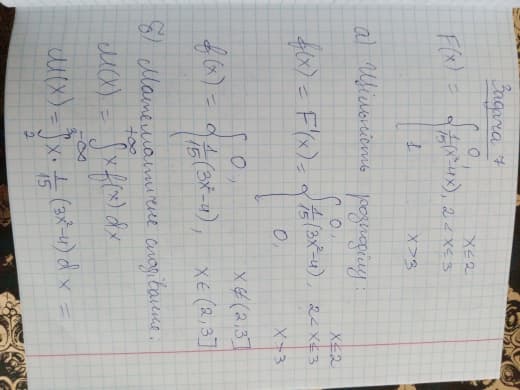 Задача 7
F(x) = { 0, x≤2
1/15(x³-4x), 2<x≤3
1 x>3
а) Щільність розподілу:
f(x) = F'(x) = { 0, x≤2
1/15(3x²-4), 2<x≤3
0, x>3
f(x) = { 0, x∉(2,3]
1/15(3x²-4), x∈(2,3]
б) Математичне сподівання.
M(X) = ∫_{-∞}^{+∞} x f(x) dx
M(X) = ∫_2^3 x · 1/15 (3x²-4) dx =